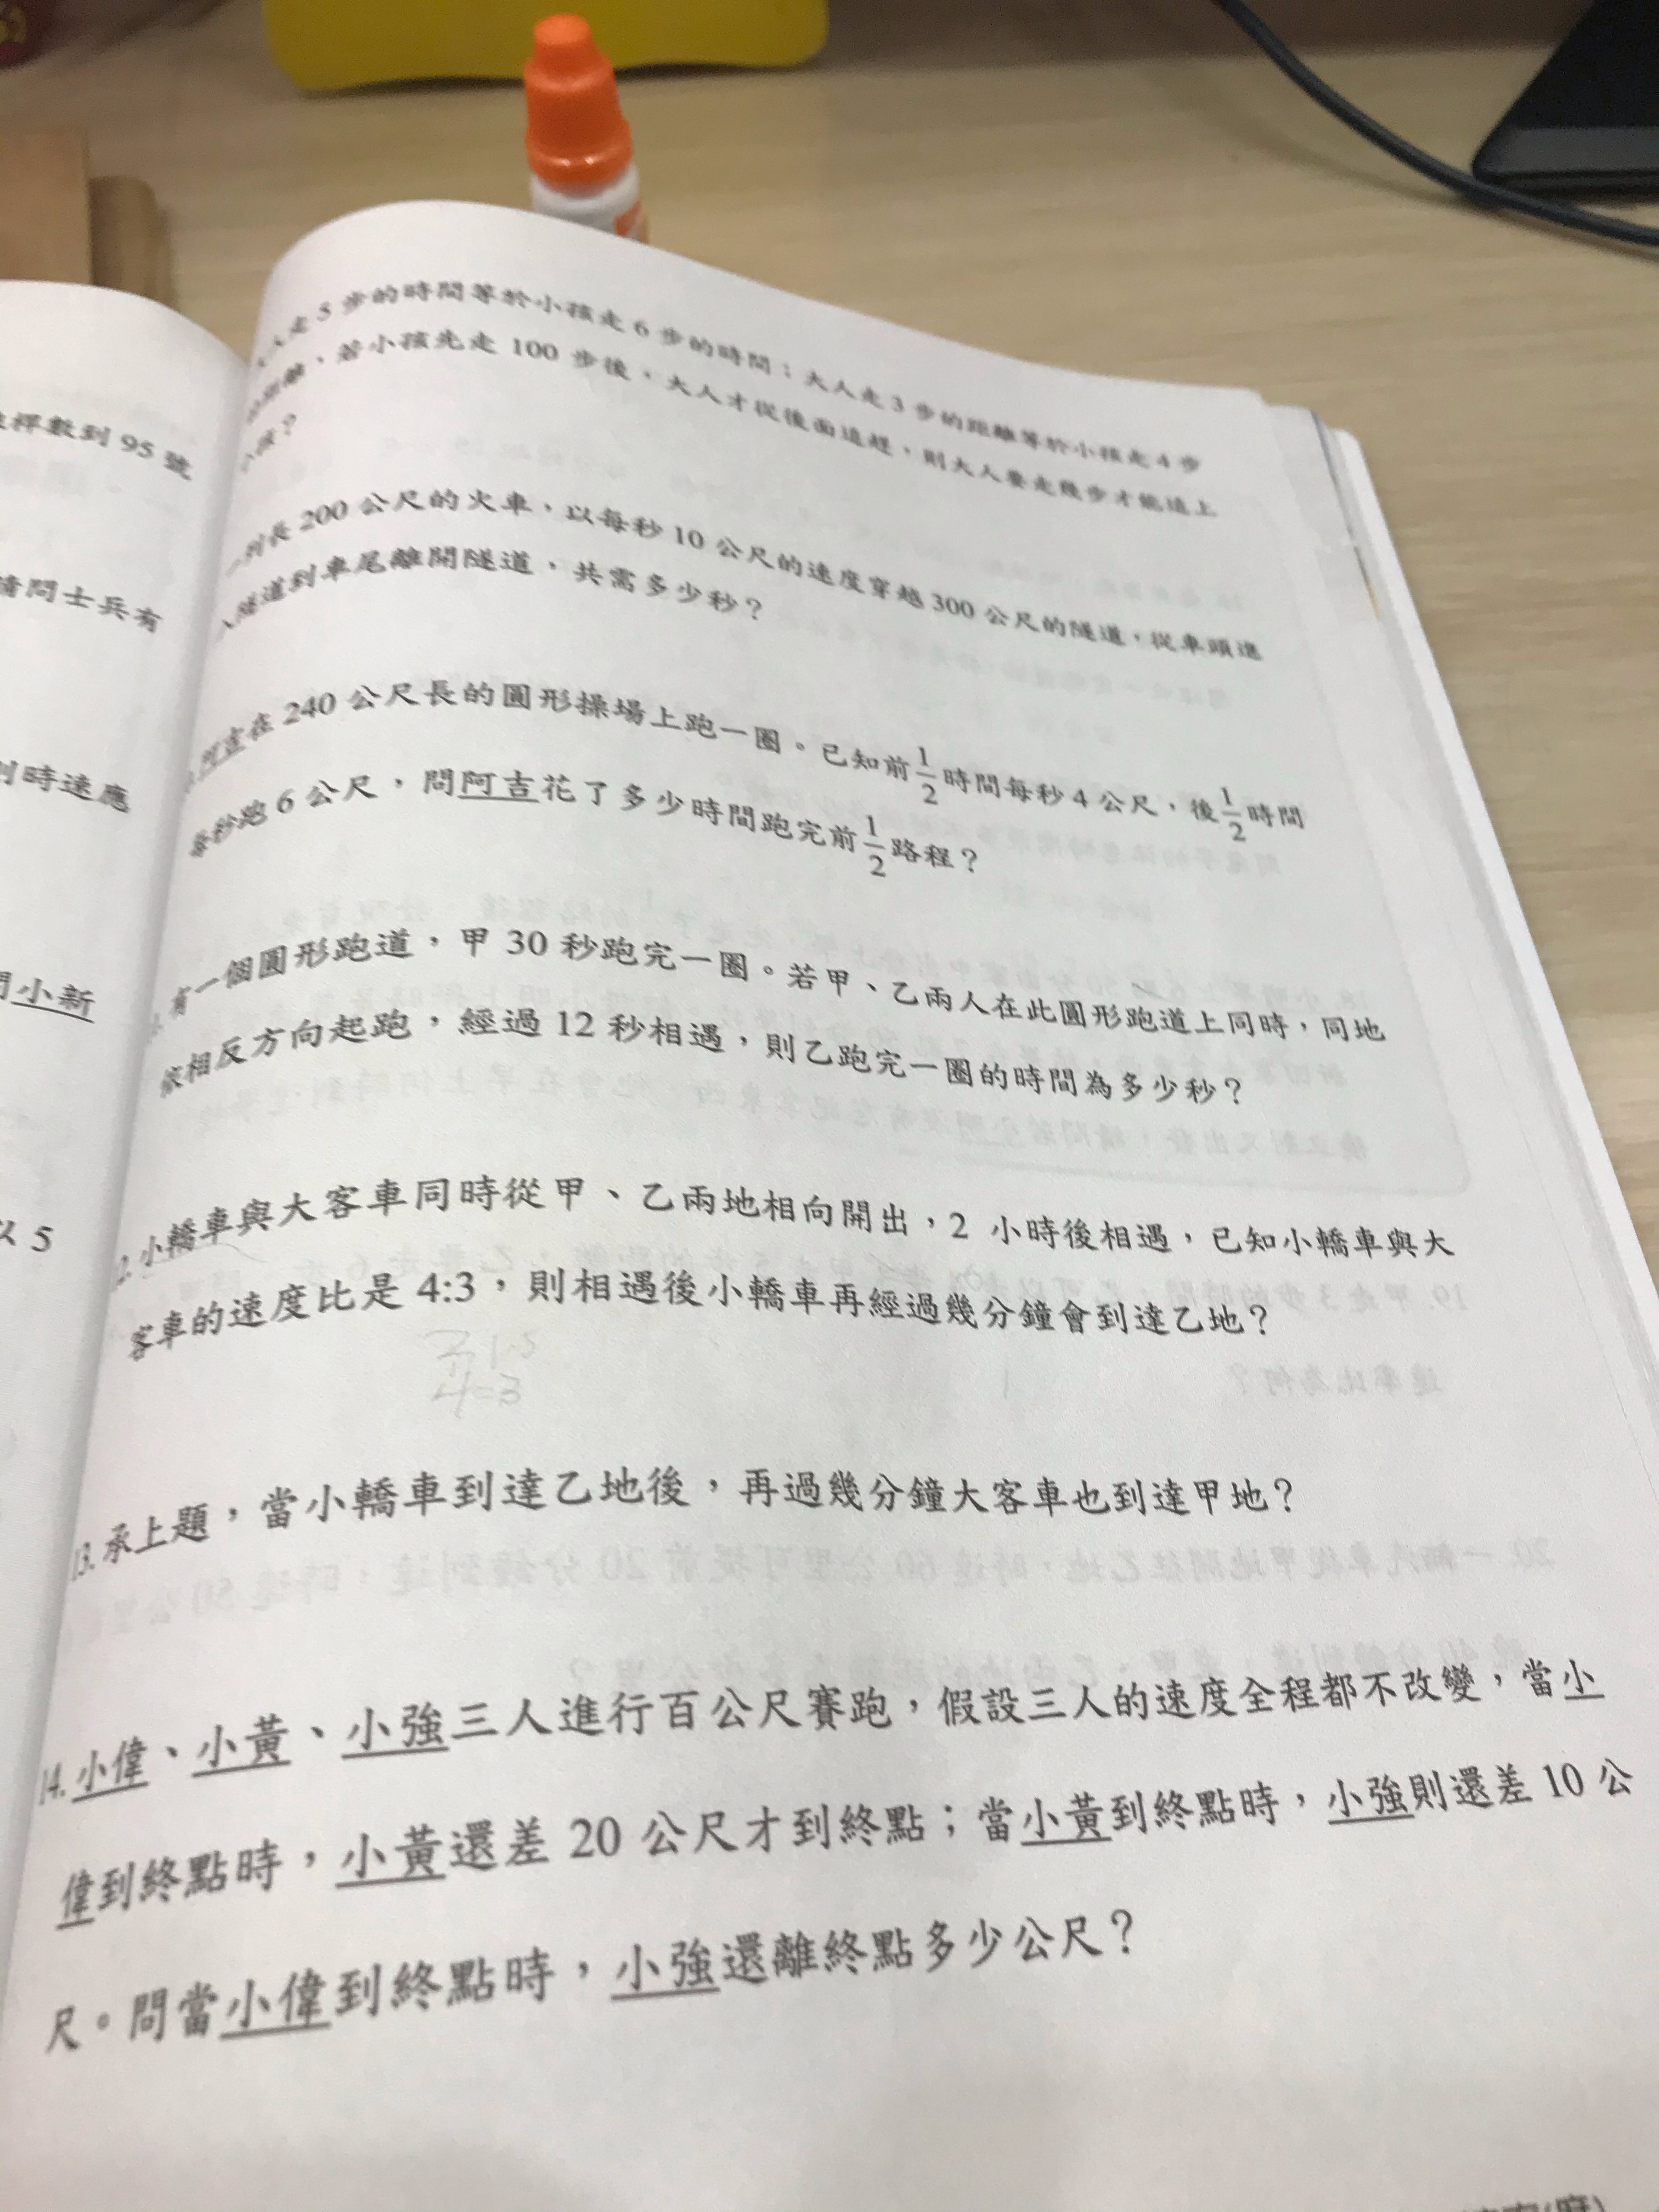 桿數到 95 號
請問士兵有
則時速應
問小新
以 5
大人走 5 步的時間等於小孩走 6 步的時間；大人走 3 步的距離等於小孩走 4 步
的距離、若小孩先走 100 步後，大人才從後面追趕，則大人要走幾步才能追上
小孩？
一列長 200 公尺的火車，以每秒 10 公尺的速度穿越 300 公尺的隧道，從車頭進
入隧道到車尾離開隧道，共需多少秒？
阿吉在 240 公尺長的圓形操場上跑一圈。已知前 1/2 時間每秒 4 公尺，後 1/2 時間
每秒跑 6 公尺，問阿吉花了多少時間跑完前 1/2 路程？
有一個圓形跑道，甲 30 秒跑完一圈。若甲、乙兩人在此圓形跑道上同時，同地
依相反方向起跑，經過 12 秒相遇，則乙跑完一圈的時間為多少秒？
2. 小轎車與大客車同時從甲、乙兩地相向開出，2 小時後相遇，已知小轎車與大
客車的速度比是 4:3，則相遇後小轎車再經過幾分鐘會到達乙地？
13. 承上題，當小轎車到達乙地後，再過幾分鐘大客車也到達甲地？
14. 小偉、小黃、小強三人進行百公尺賽跑，假設三人的速度全程都不改變，當小
偉到終點時，小黃還差 20 公尺才到終點；當小黃到終點時，小強則還差 10 公
尺。問當小偉到終點時，小強還離終點多少公尺？